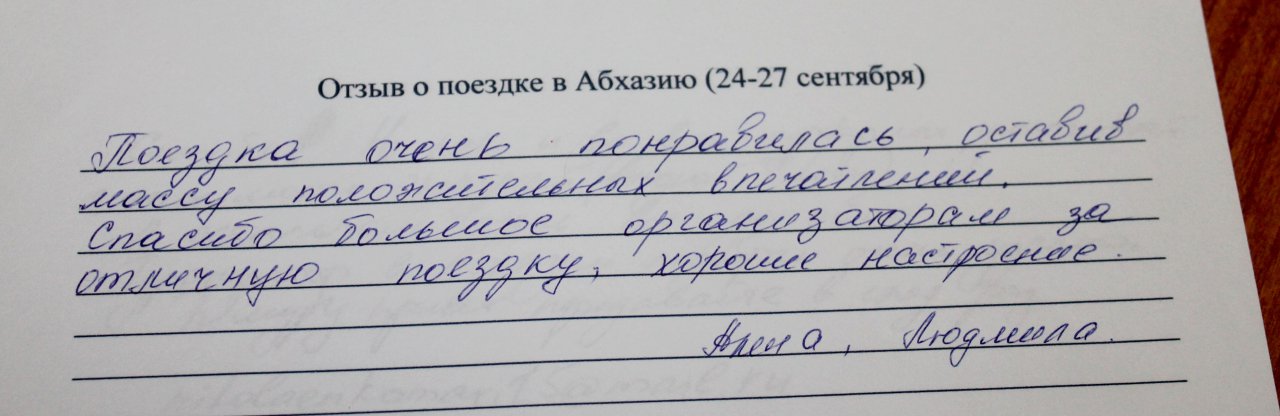 Отзыв о поездке в Абхазию (24-27 сентября)
Поездка очень понравилась, оставив
массу положительных впечатлений.
Спасибо большое организаторам за
отличную поездку, хорошие настроение.
Людмила.